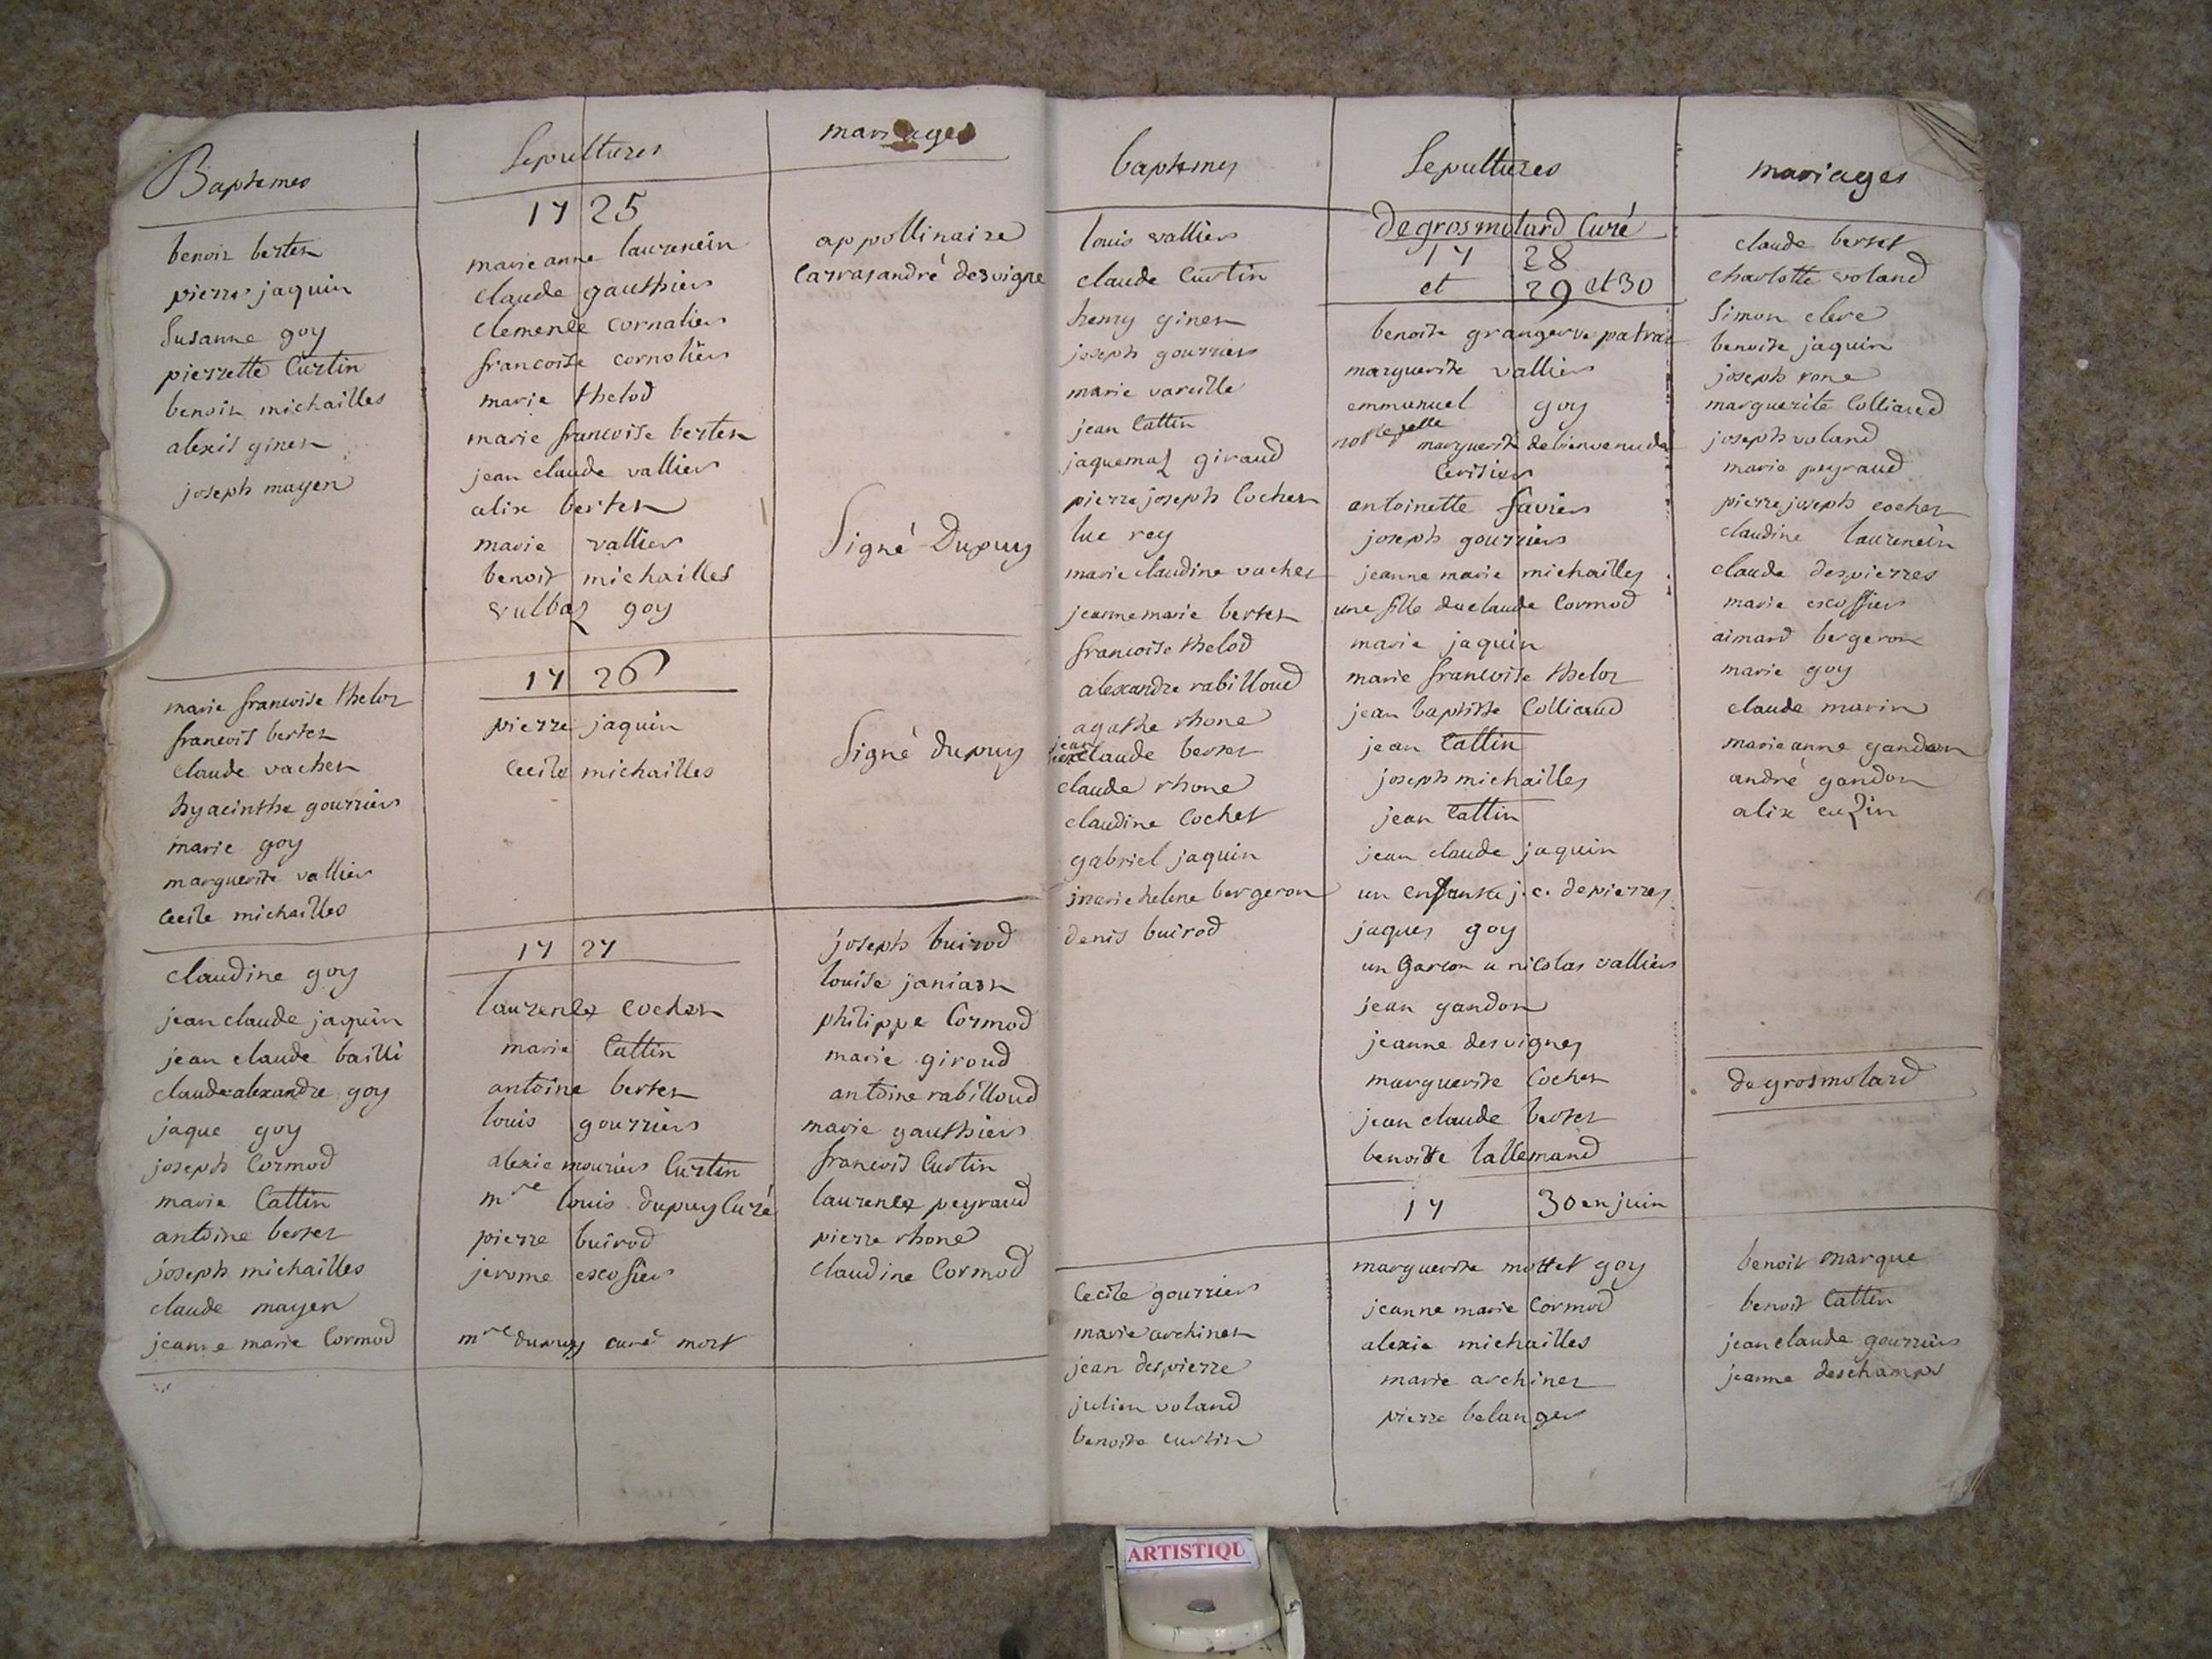 Baptemes
benoit berter
pierre jaquin
Susanne goy
pierrette Curtin
benoit michailles
alexis giner
joseph mayen
marie francoise thelor
francois berter
claude vacher
hyacinthe gourrier
marie goy
marguerite vallier
cecile michailles
claudine goy
jean claude jaquin
jean claude bailli
claude alexandre goy
jaque goy
joseph Cormod
marie Cattin
antoine berter
joseph michailles
claude mayen
jeanne marie Cormod
Sepultures
1725
marie anne laurencin
claude gauthier
clemence cornalier
francoise cornolier
marie thelod
marie francoise berter
jean claude vallier
alix berter
marie vallier
benoit michailles
vulbaz goy
1726
pierre jaquin
Cecile michailles
1727
laurence cocher
marie Cattin
antoine berter
louis gourrier
alexie mourier Curtin
mre louis dupuy Curé
pierre buirod
jerome escofier
mre dupuy curé mort
mariages
appollinaire
Carras andré desvigne
Signé Dupuy
Signé dupuy
joseph buirod
louise janiarr
philippe Cormod
marie giroud
antoine rabilloud
marie gauthier
francois Curtin
laurence peyraud
pierre rhone
claudine Cormod
baptemes
louis vallier
claude Curtin
henry giner
joseph gourrier
marie vareille
jean Cattin
jaquemaz giraud
pierre joseph Cocher
luc rey
marie claudine vacher
jeanne marie berter
francoise thelod
alexandre rabilloud
agathe rhone
jean
claude berter
claude rhone
claudine Cochet
gabriel jaquin
marie helene bergeron
denis buirod
Cecile gourrier
marie archiner
jean despierre
julien voland
benoite curtin
Sepultures
degrosmolard Curé
1728
et 29 et 30
benoite granger ve patras
marguerite vallier
emmanuel goy
noble delle marguerite de bienvenu de
Cerisier
antoinette favier
joseph gourrier
jeanne marie michailles
une fille de claude Cormod
marie jaquin
marie francoise thelor
jean baptiste Colliaud
jean Cattin
joseph michailles
jean Cattin
jean claude jaquin
un enfant a j. c. depierres
jaques goy
un Garcon a nicolas vallier
jean gandon
jeanne desvignes
marguerite Cocher
jean claude berter
benoitte lallemand
1730 en juin
marguerite mottet goy
jeanne marie Cormod
alexie michailles
marie archiner
pierre belanger
mariages
claude berter
charlotte voland
Simon clere
benoite jaquin
joseph rone
marguerite Colliaud
joseph voland
marie peyraud
pierre joseph cocher
claudine laurencin
claude despierres
marie escoffier
aimard bergeron
marie goy
claude marin
marie anne gandon
andré gandon
alix cuzin
degrosmolard
benoit marque
benoit Cattin
jean claude gourrier
jeanne deschamps
ARTISTIQU